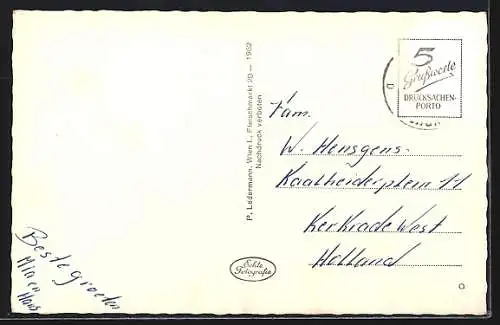 5
Grußworte
DRUCKSACHEN-
PORTO
P. Ledermann, Wien I., Fleischmarkt 20 — 1962
Nachdruck verboten
Fam.
W. Hensgens.
Kaalheiderplein 11
Kerkrade West
Holland
Beste groeten
Mia en
Hans
Echte
Fotografie